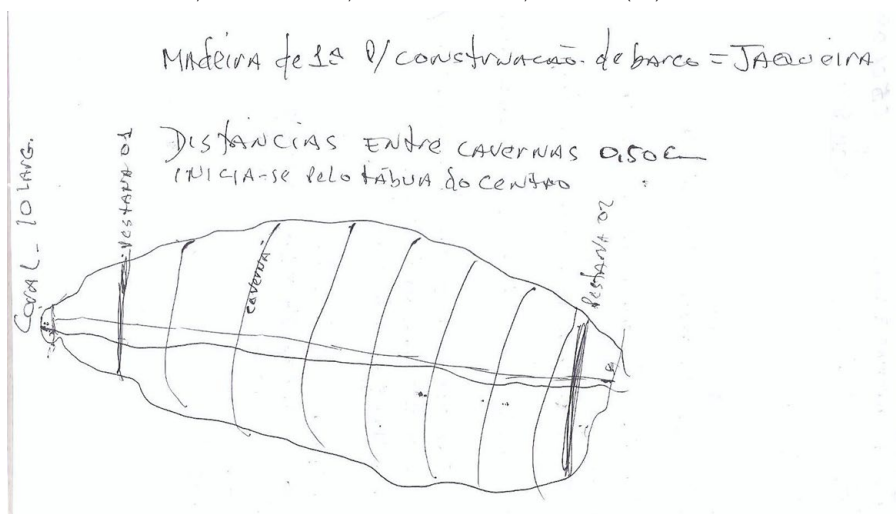 Madeira de 1ª p/ construwacão de barco = JAQUeirA
DISTÂNCIAS ENtre CAVERNAS 0,50c
INICIA-se pelo tábua do CENTRO
CORAL - 10 LARG.
PESTANA 01
CAVERNA
PESTANA 02